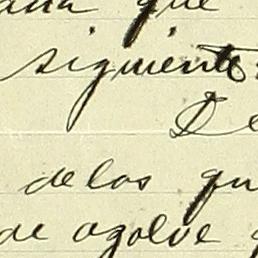 que
siguiente:
De
de los qu
de agolve